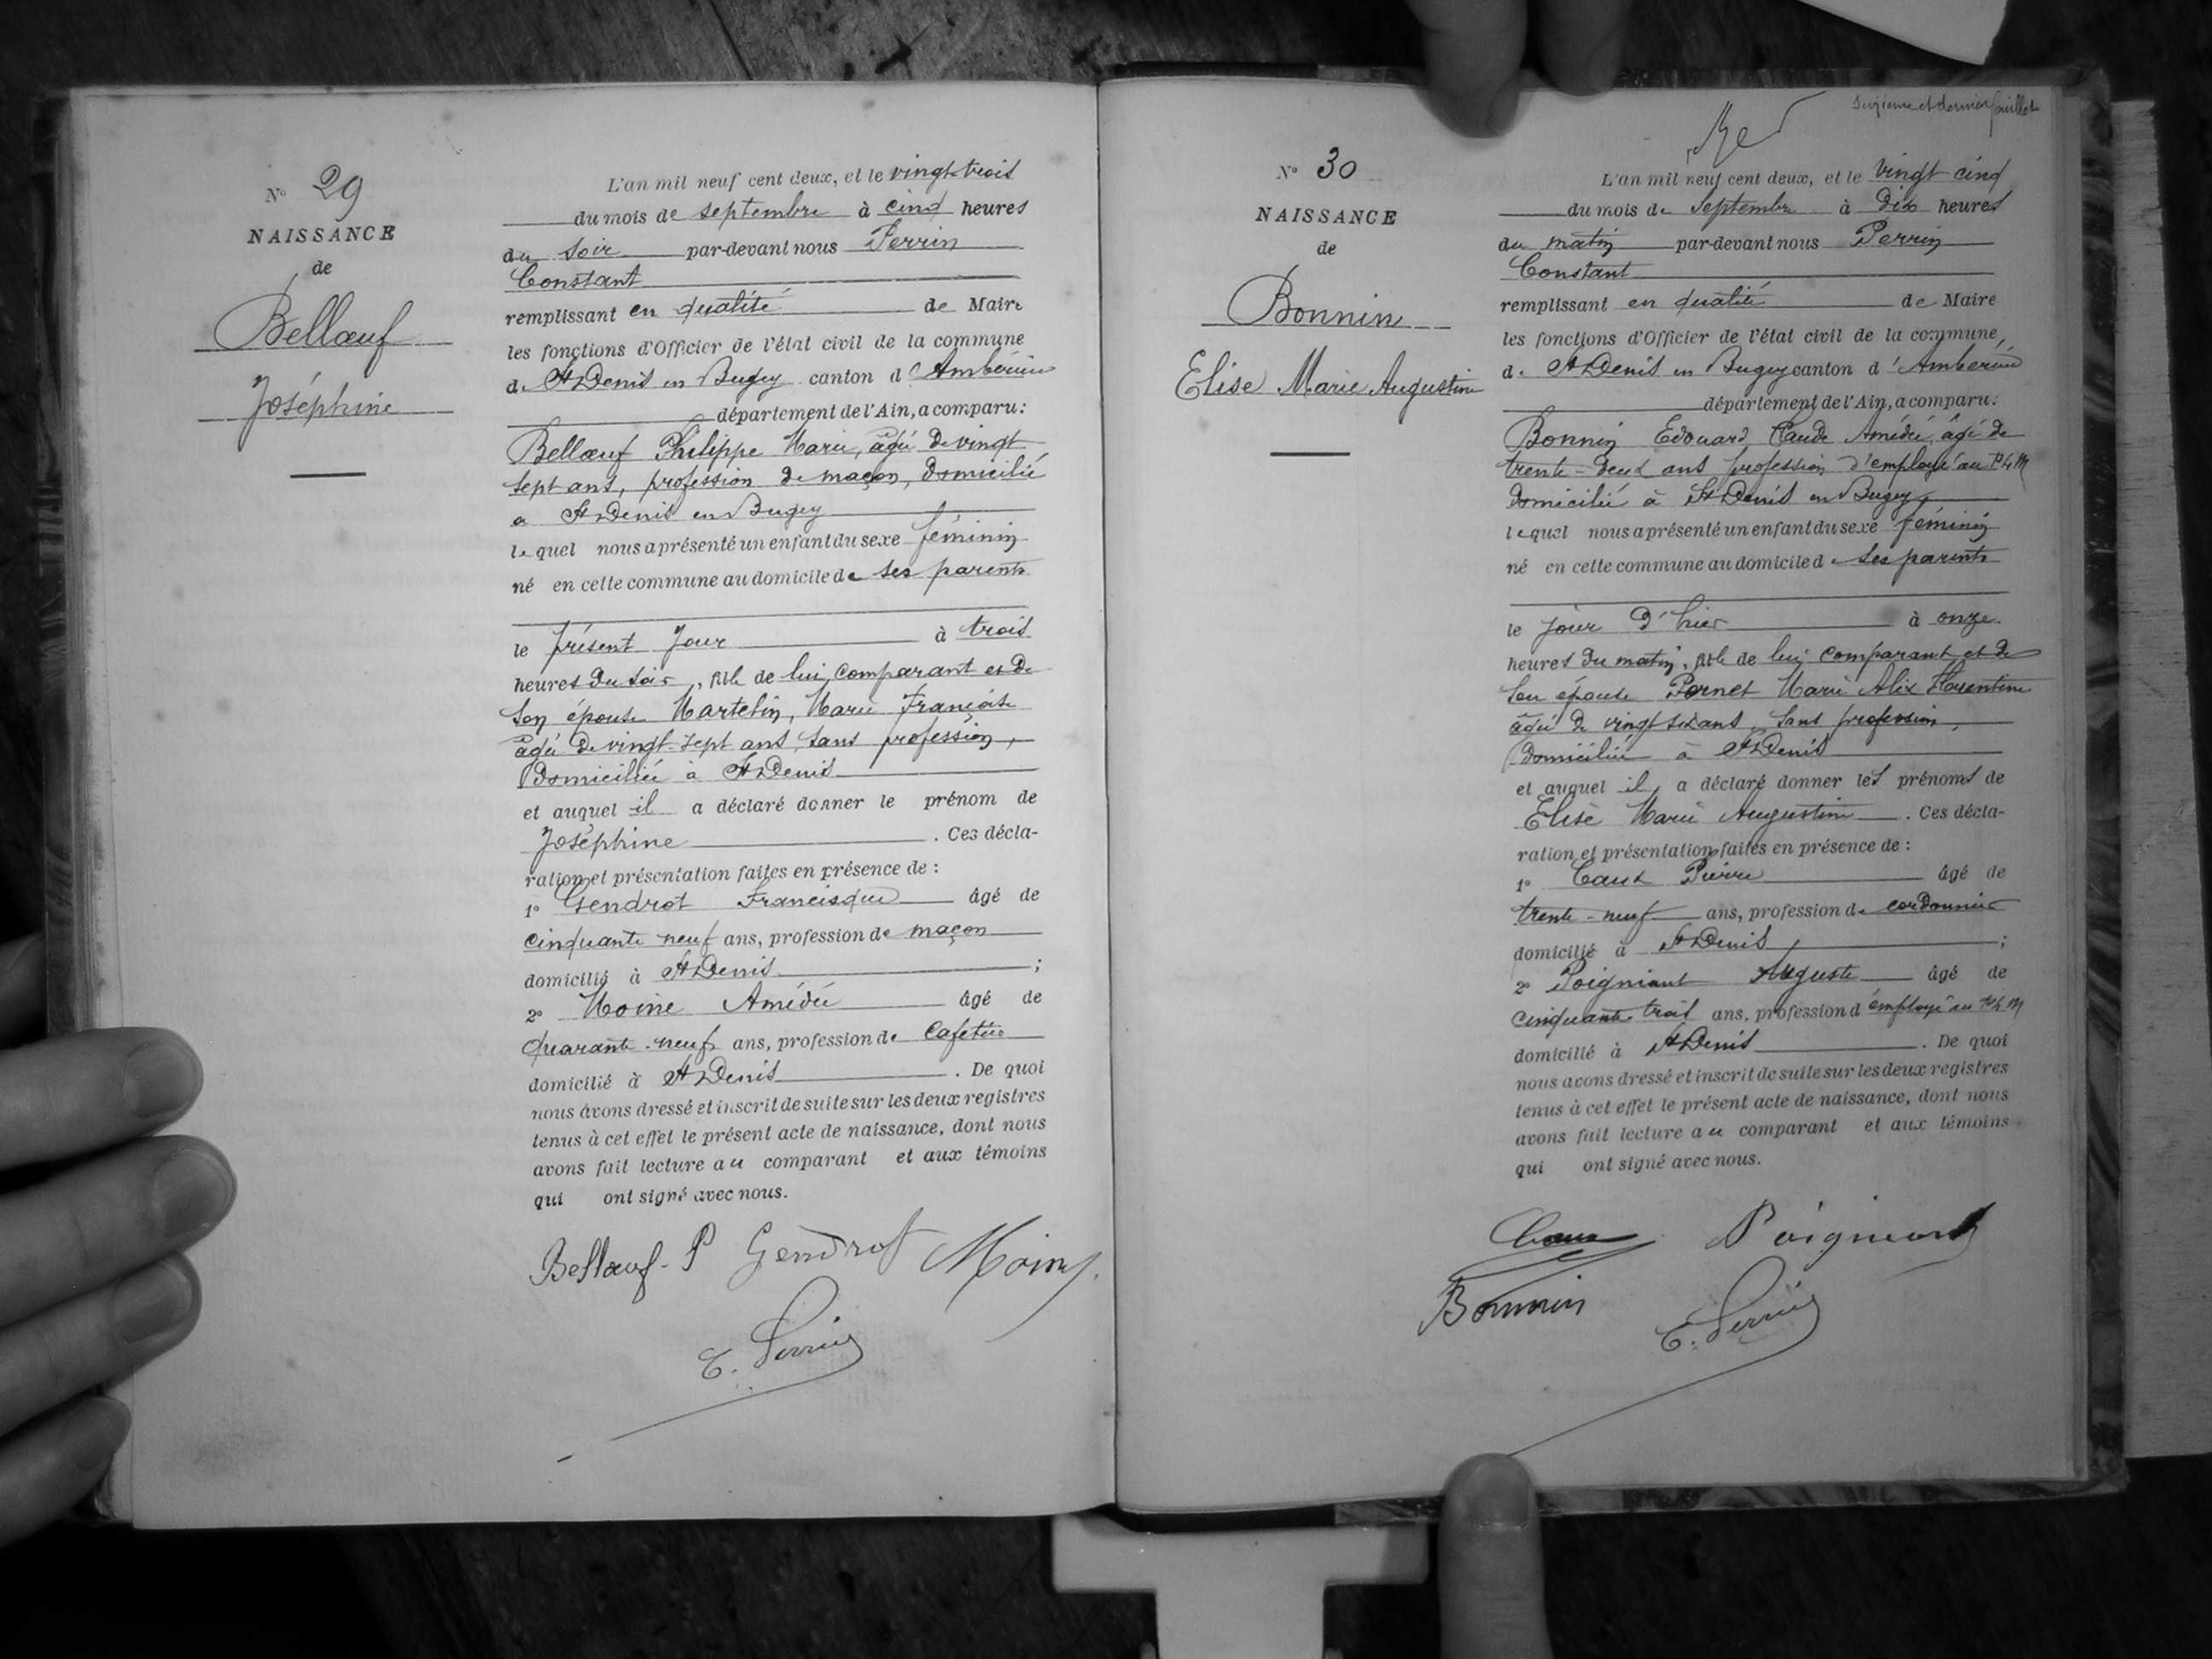 N° 29
NAISSANCE
de
Bellœuf
Joséphine
L'an mil neuf cent deux, et le vingt-trois
du mois de septembre à cinq heures
du soir par-devant nous Perrin
Constant
remplissant en qualité de Maire
les fonctions d'Officier de l'état civil de la commune
de St Denis en Bugey canton d'Ambérieu
département de l'Ain, a comparu:
Bellœuf Philippe Marie, âgé de vingt
sept ans, profession de maçon, domicilié
a St Denis en Bugey
lequel nous a présenté un enfant du sexe féminin
né en cette commune au domicile de ses parents
le présent jour à trois
heures du soir, fille de lui comparant et de
son épouse Martelin, Marie Françoise
agée de vingt-sept ans, sans profession,
domiciliée à St Denis
et auquel il a déclaré donner le prénom de
Joséphine. Ces décla-
ration et présentation faites en présence de :
1° Gendrot Francisque âgé de
cinquante neuf ans, profession de maçon
domicilié à St Denis ;
2° Moine Amédée âgé de
quarante-neuf ans, profession de cafetier
domicilié à St Denis. De quoi
nous avons dressé et inscrit de suite sur les deux registres
tenus à cet effet le présent acte de naissance, dont nous
avons fait lecture au comparant et aux témoins
qui ont signé avec nous.
Bellœuf-P Gendrot Moine
C. Perrin
feuillet
N° 30
NAISSANCE
de
Bonnin
Elise Marie Augustine
L'an mil neuf cent deux, et le vingt cinq
du mois de septembre à dix heures
du matin par-devant nous Perrin
Constant
remplissant en qualité de Maire
les fonctions d'Officier de l'état civil de la commune
de St Denis en Bugey canton d'Ambérieu
département de l'Ain, a comparu:
Bonnin Edouard Claude Amédée, âgé de
trente-deux ans profession d'employé au PLM
domicilié à St Denis en Bugey,
lequel nous a présenté un enfant du sexe féminin
né en cette commune au domicile de ses parents
le jour d'hier à onze
heures du matin, fille de lui comparant et de
son épouse Pernet Marie Alix Florentine
agée de vingt six ans, sans profession,
domiciliée à St Denis
et auquel il a déclaré donner les prénoms de
Elise Marie Augustine. Ces décla-
ration et présentation faites en présence de :
1° Caux Pierre âgé de
trente-neuf ans, profession de cordonnier
domicilié à St Denis ;
2° Poigniant Auguste âgé de
cinquante trois ans, profession d'employé au PLM
domicilié à St Denis. De quoi
nous avons dressé et inscrit de suite sur les deux registres
tenus à cet effet le présent acte de naissance, dont nous
avons fait lecture au comparant et aux témoins
qui ont signé avec nous.
Caux Poigniant
Bonnin C. Perrin